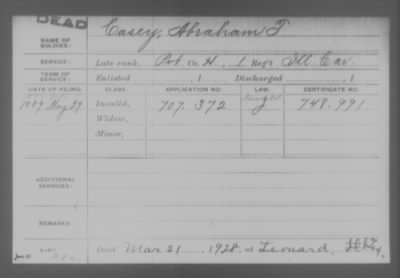 DEAD
NAME OF SOLDIER: Casey, Abraham T
SERVICE: Late rank, Pvt Co. H, 1 Regt Ill. Cav.
TERM OF SERVICE: Enlisted , 1 Discharged , 1
DATE OF FILING. CLASS. APPLICATION NO. LAW. CERTIFICATE NO.
1889 Invalid, 707.372 748.991
Widow,
Minor,
ADDITIONAL SERVICES:
REMARKS:
Died Mar. 21 1928, at Leonard,